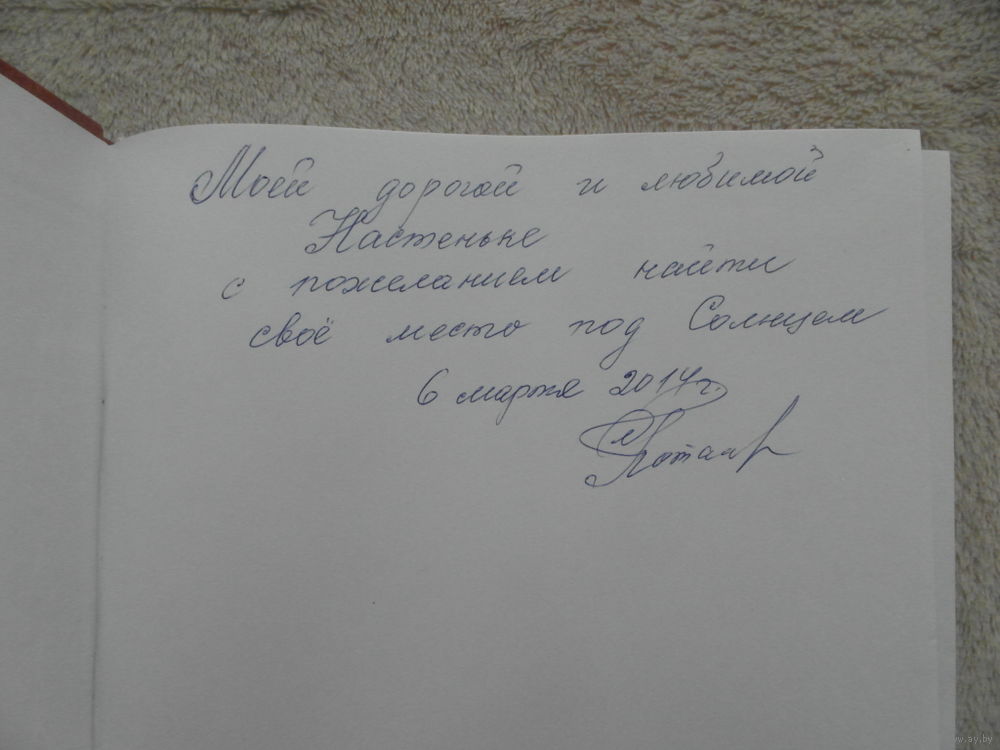 Моей дорогой и любимой
Настеньке
с пожеланием найти
своё место под Солнцем
6 марта 2014г.
www.ay.by